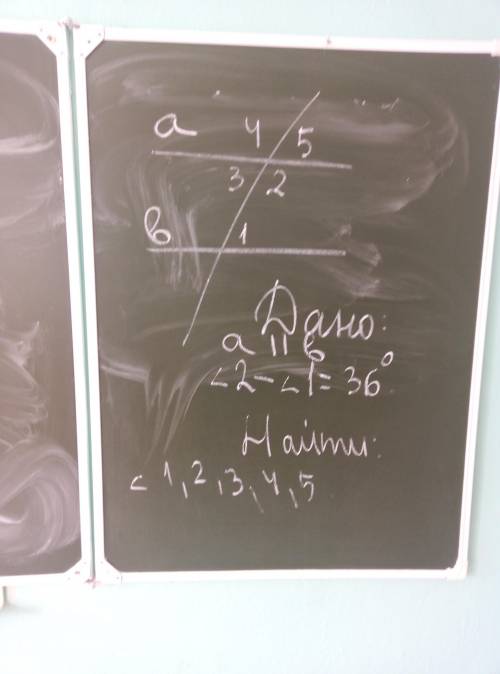 a 4 5
3 2
в 1
Дано:
a || в
∠2 - ∠1 = 36°
Найти:
∠ 1, 2, 3, 4, 5